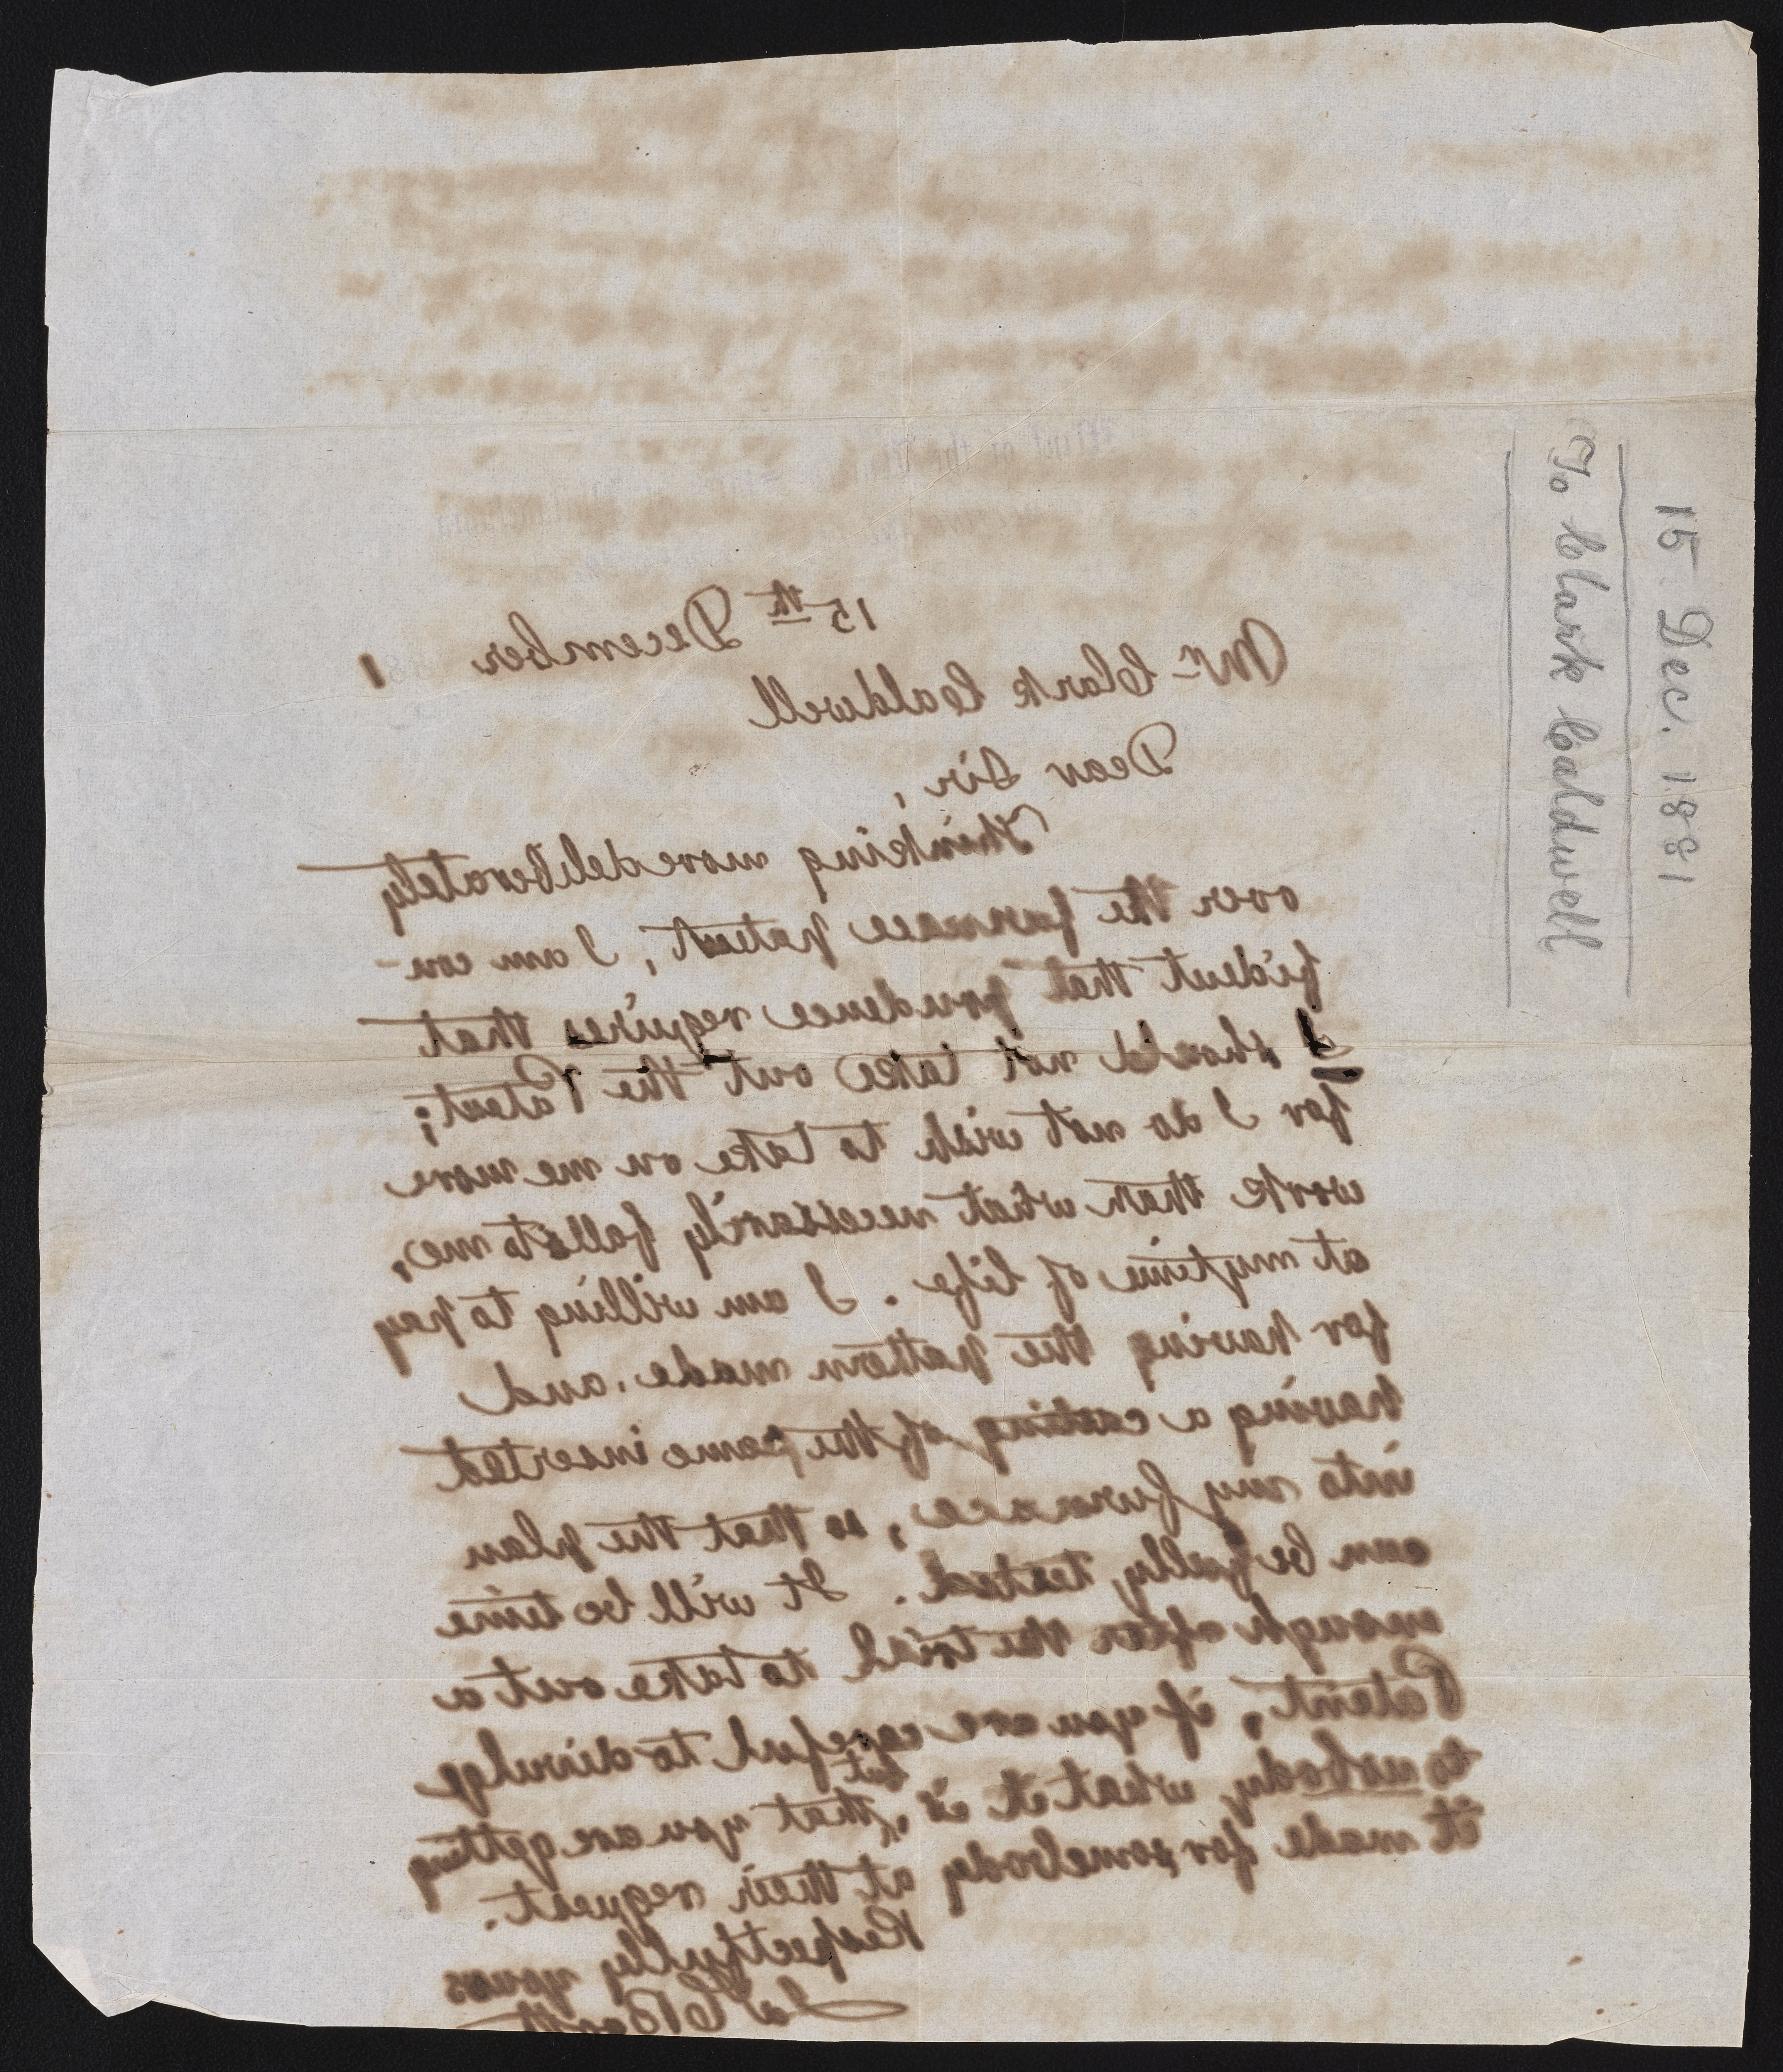 15 Dec. 1881
To Clark Caldwell
15th December 1
Mr Clark Caldwell
Dear Sir,
Thinking more deliberately
over the furnace patent, I am con-
fident that prudence requires that
I should not take out the Patent;
for I do not wish to take on me more
work than what necessarily falls to me,
at my time of life. I am willing to pay
for having the pattern made, and
having a casting of the same inserted
into my furnace, so that the plan
can be fully tested. It will be time
enough after the trial to take out a
Patent, if you are careful to divulge
to nobody what it is, but that you are getting
it made for somebody at their request.
Respectfully yours